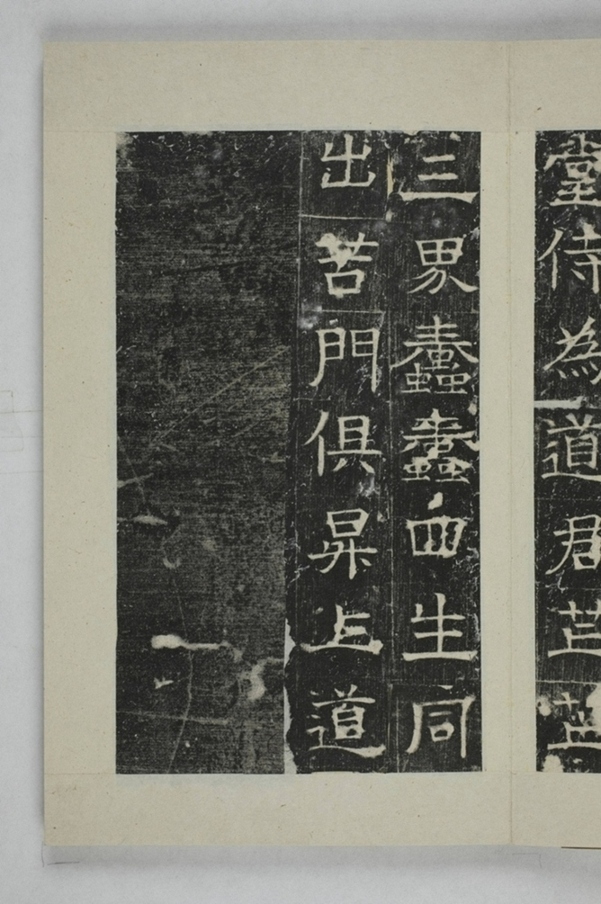 堂侍為道君芒芒
三界蠢蠢四生同
出苦門俱昇上道